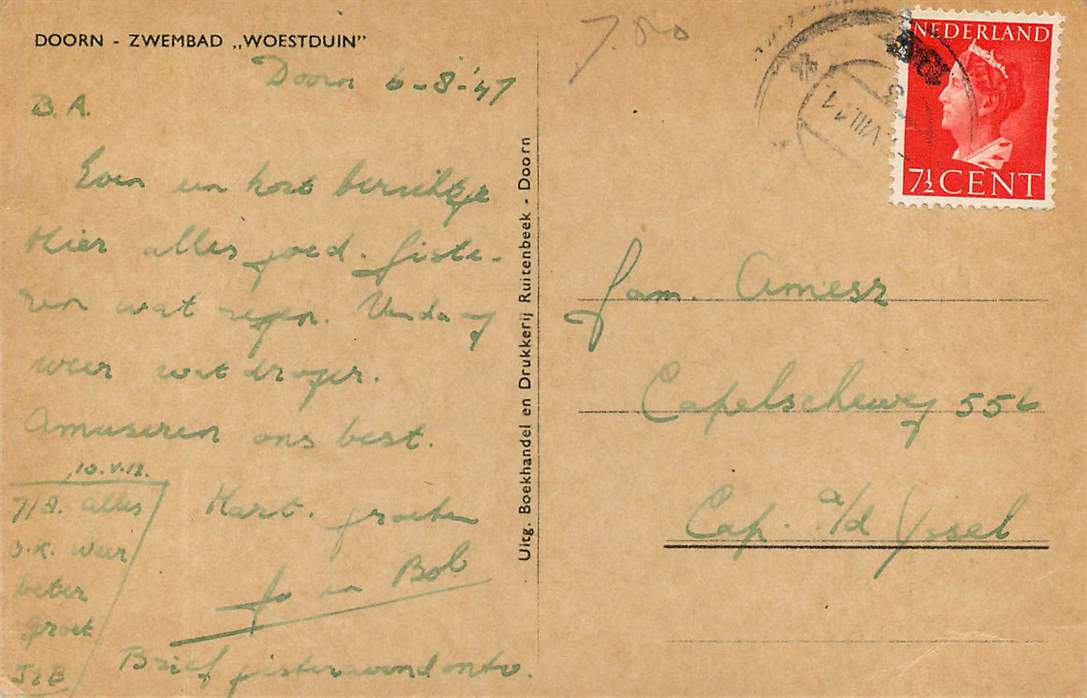 DOORN - ZWEMBAD „WOESTDUIN”
Doorn 6-8-'47
B.A.
Even een kort berichtje
Hier alles goed. Giste-
ren wat regen. Vandaag
weer wat droger.
Amuseren ons best.
Hart. groeten
Jo en Bob
Brief gisteravond ontv.
10.V.12.
7/8. alles
o.k. weer
beter
groet
J&B
Uitg. Boekhandel en Drukkerij Ruitenbeek - Doorn
7.80
VIII.11
NEDERLAND
7½ CENT
fam. Amesz
Capelscheweg 556
Cap. a/d Yssel